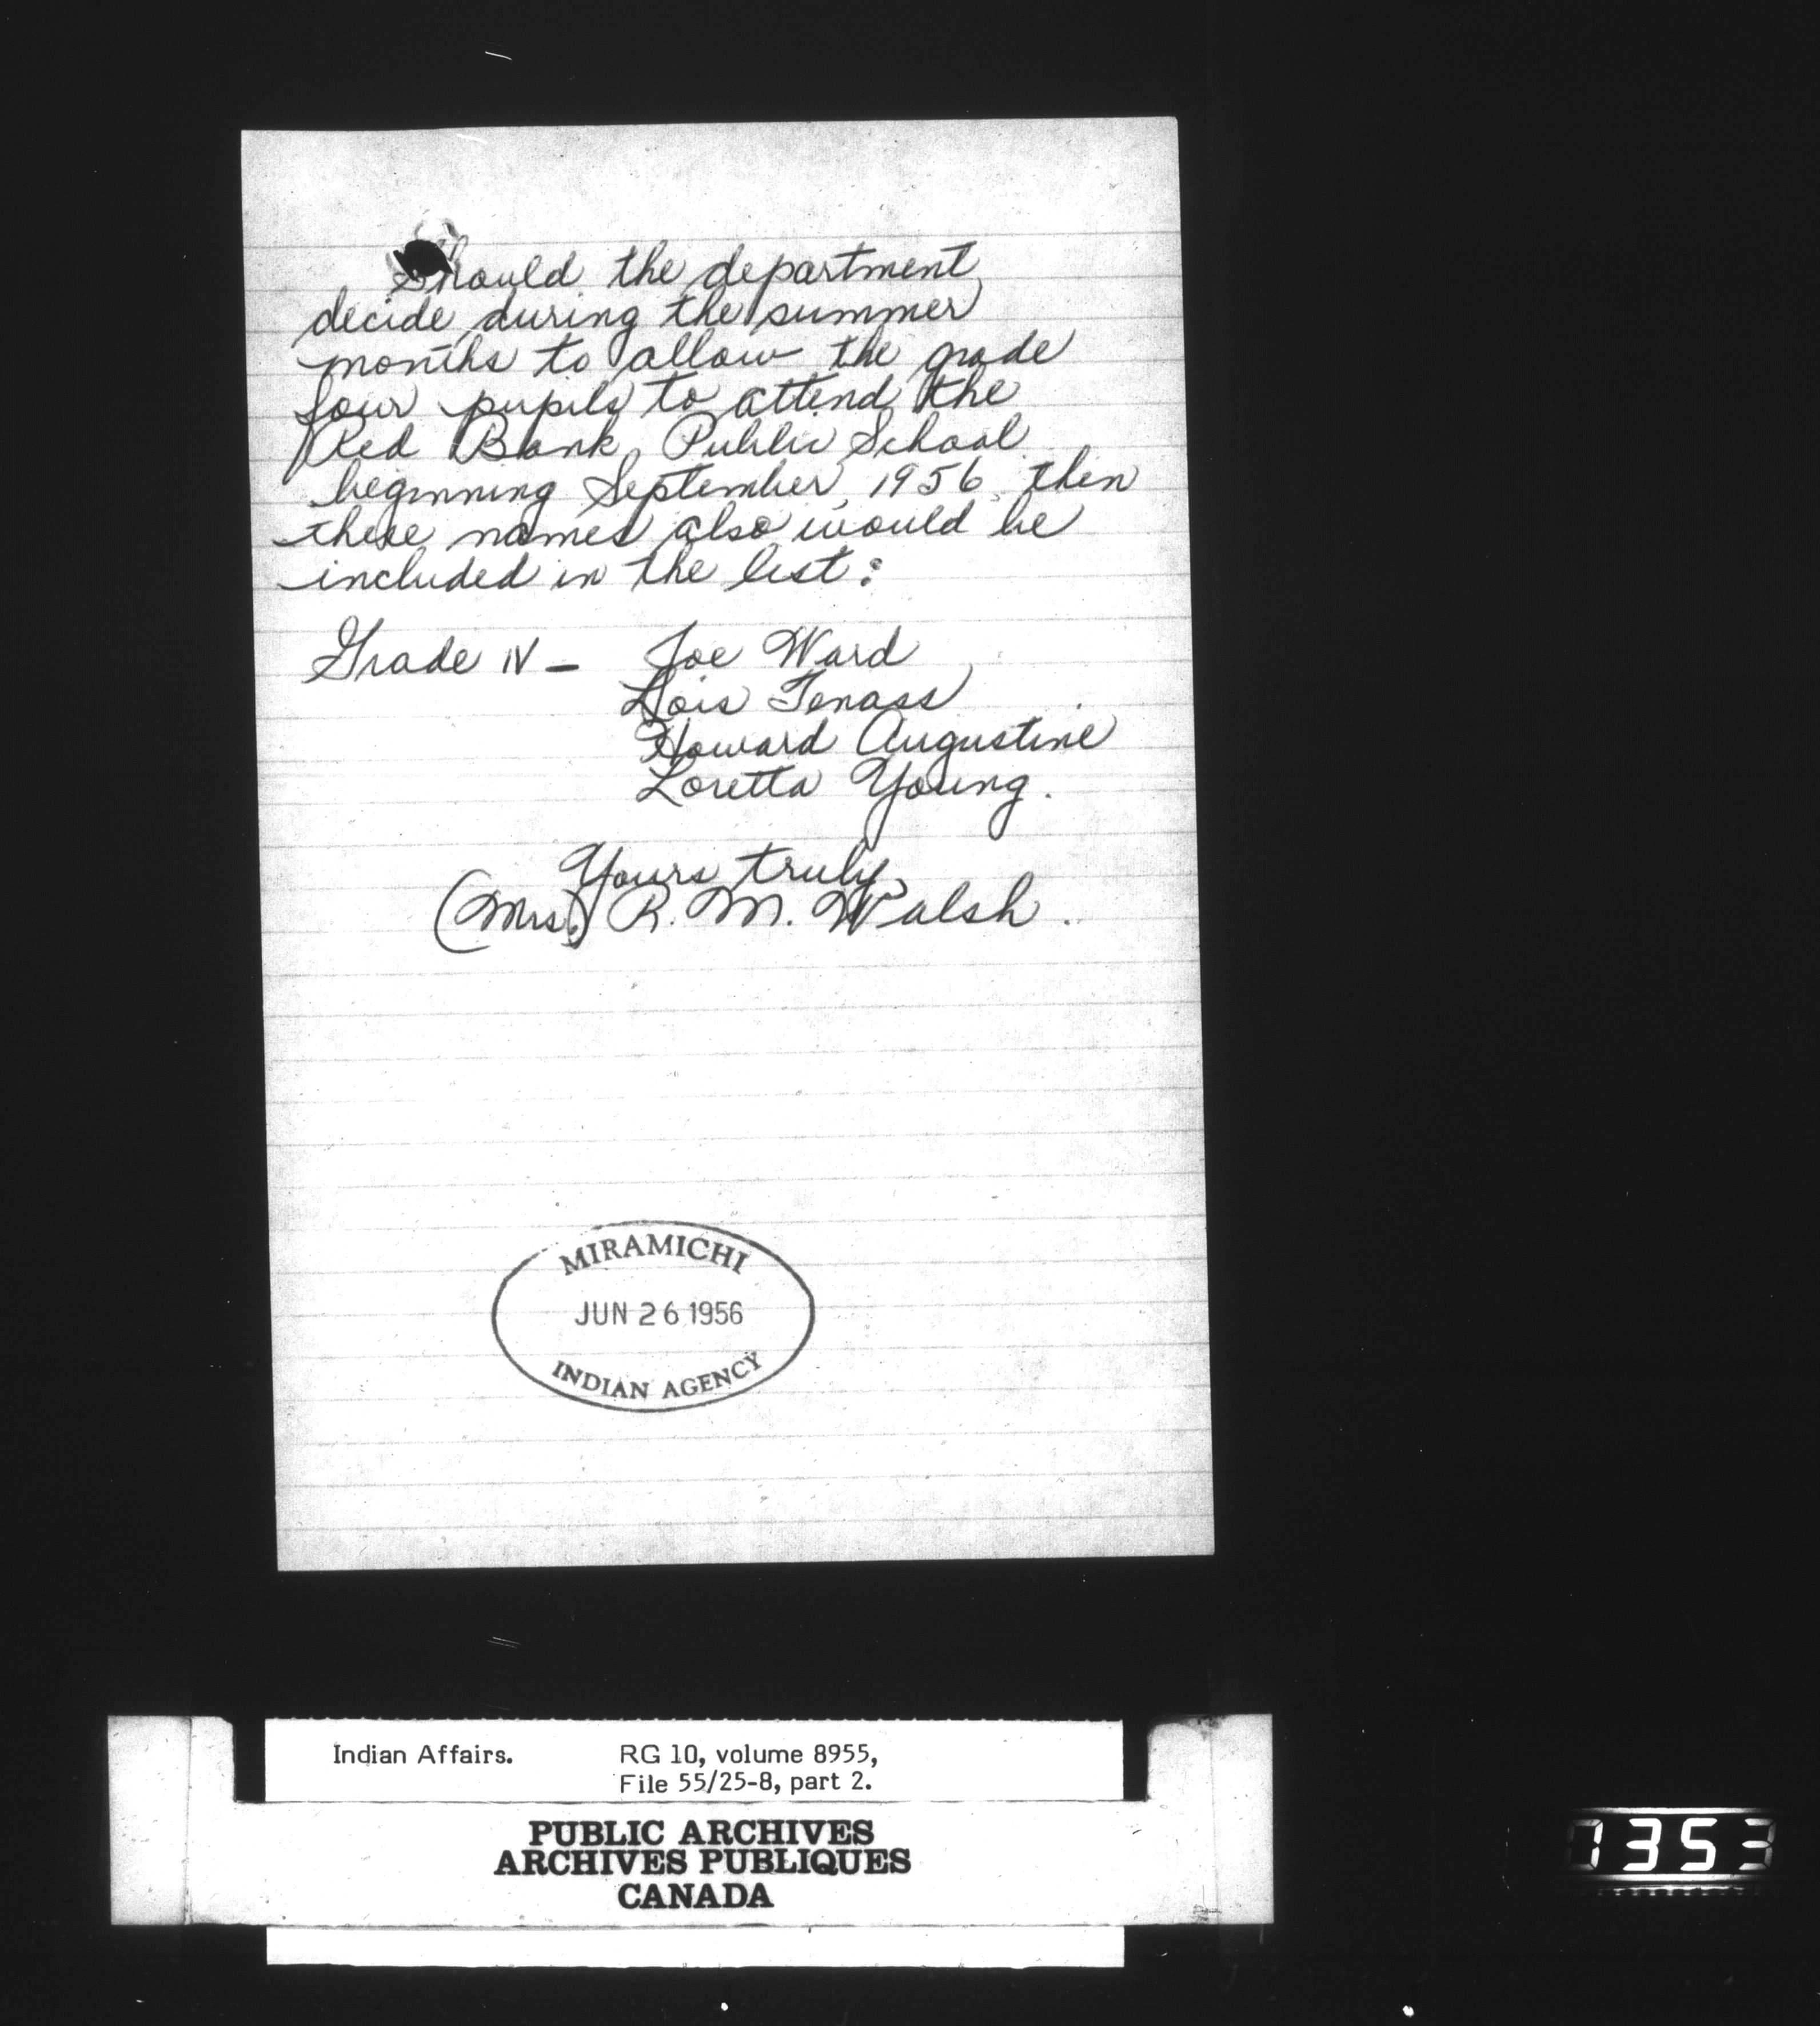 Should the department
decide during the summer
months to allow the grade
four pupils to attend the
Red Bank Public School
beginning September, 1956, then
these names also would be
included in the list:
Grade IV - Joe Ward
Lois Tenass
Howard Augustine
Loretta Young.
Yours truly,
(Mrs.) R. M. Walsh.
MIRAMICHI
JUN 26 1956
INDIAN AGENCY
Indian Affairs. RG 10, volume 8955,
File 55/25-8, part 2.
PUBLIC ARCHIVES
ARCHIVES PUBLIQUES
CANADA
1353